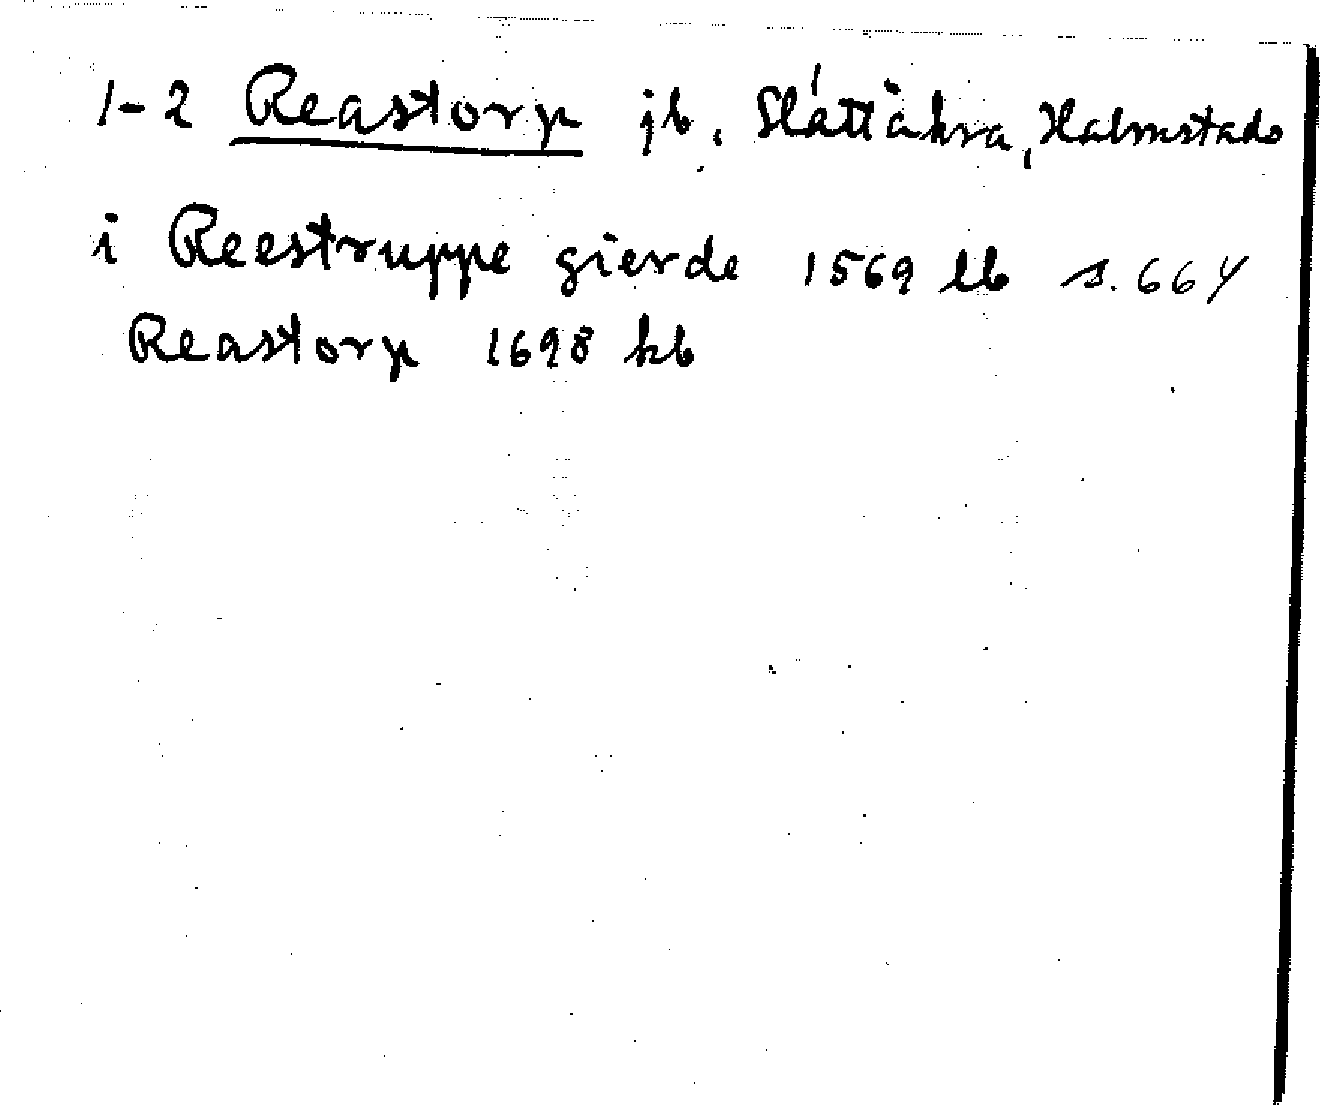 1-2 Reastorp jb, Slättåkra, Halmstads
i Reestruppe gierde 1569 lb s. 664
Reastorp 1698 kb